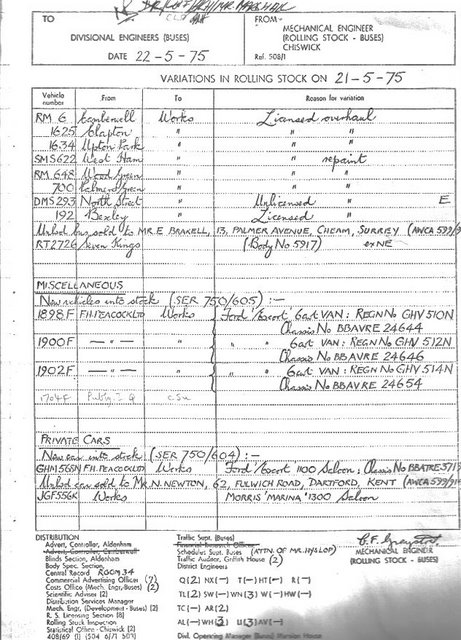 TO
DIVISIONAL ENGINEERS (BUSES)
DATE 22-5-75
FROM
MECHANICAL ENGINEER
(ROLLING STOCK - BUSES)
CHISWICK
Ref. 508/1
VARIATIONS IN ROLLING STOCK ON 21-5-75
Vehicle number From To Reason for variation
RM 6 Camberwell Works Licensed overhaul
1625 Clapton " " "
1634 Upton Park " " "
SMS622 West Ham " " repaint
RM 648 Wood Green " " "
700 Palmers Green " " "
DMS293 North Street " Unlicensed " E
192 Bexley " Licensed "
Unlicd bus sold to MR.E. BRAKELL, 13, PALMER AVENUE, CHEAM, SURREY (AWCA 599/9
RT2726 Seven Kings (Body No 5917) ex NE
MISCELLANEOUS
New vehicles into stock (SER 750/605) :-
1898F F.H. PEACOCK LTD Works Ford 'Escort' 6cwt VAN: REGN No GHV 510N
Chassis No BBAVRE 24644
1900F — " — " " 6cwt VAN: REGN No GHV 512N
Chassis No BBAVRE 24646
1902F — " — " " 6cwt VAN: REGN No GHV 514N
Chassis No BBAVRE 24654
1704F
PRIVATE CARS
New car into stock (SER 750/604) :-
GHM 565N F.H. PEACOCK LTD Works Ford 'Escort' 1100 Saloon; Chassis No BBATRE 5713
Unlicd car sold to Mr. N. NEWTON, 62, FULWICH ROAD, DARTFORD, KENT (AWCA 599/9
JGF556K Works MORRIS 'MARINA' 1300 Saloon
DISTRIBUTION
Advert. Controller, Aldenham
Blinds Section, Aldenham
Body Spec. Section,
Central Record ROOM 34
Commercial Advertising Officer (7)
Costs Office (Mech. Engr, Buses) (2)
Scientific Adviser (2)
Distribution Services Manager
Mech. Engr. (Development - Buses) (2)
R. S. Licensing Section (8)
Rolling Stock Inspection
Statistical Office - Chiswick (2)
408/69 (1) (504 6/71 503)
Traffic Supt. (Buses)
Schedules Supt. Buses (ATTN. OF MR. HYSLOP)
Traffic Auditor, Griffith House (2)
District Engineers
Q(2) NX(-) T(-) HT(-) R(-)
TL(2) SW(-) WN(3) W(-) HW(-)
TC(-) AR(2)
AL(-) WH(3) U(3) AV(-)
Dist. Operating Manager (Buses) Mansion House
MECHANICAL ENGINEER
(ROLLING STOCK - BUSES)